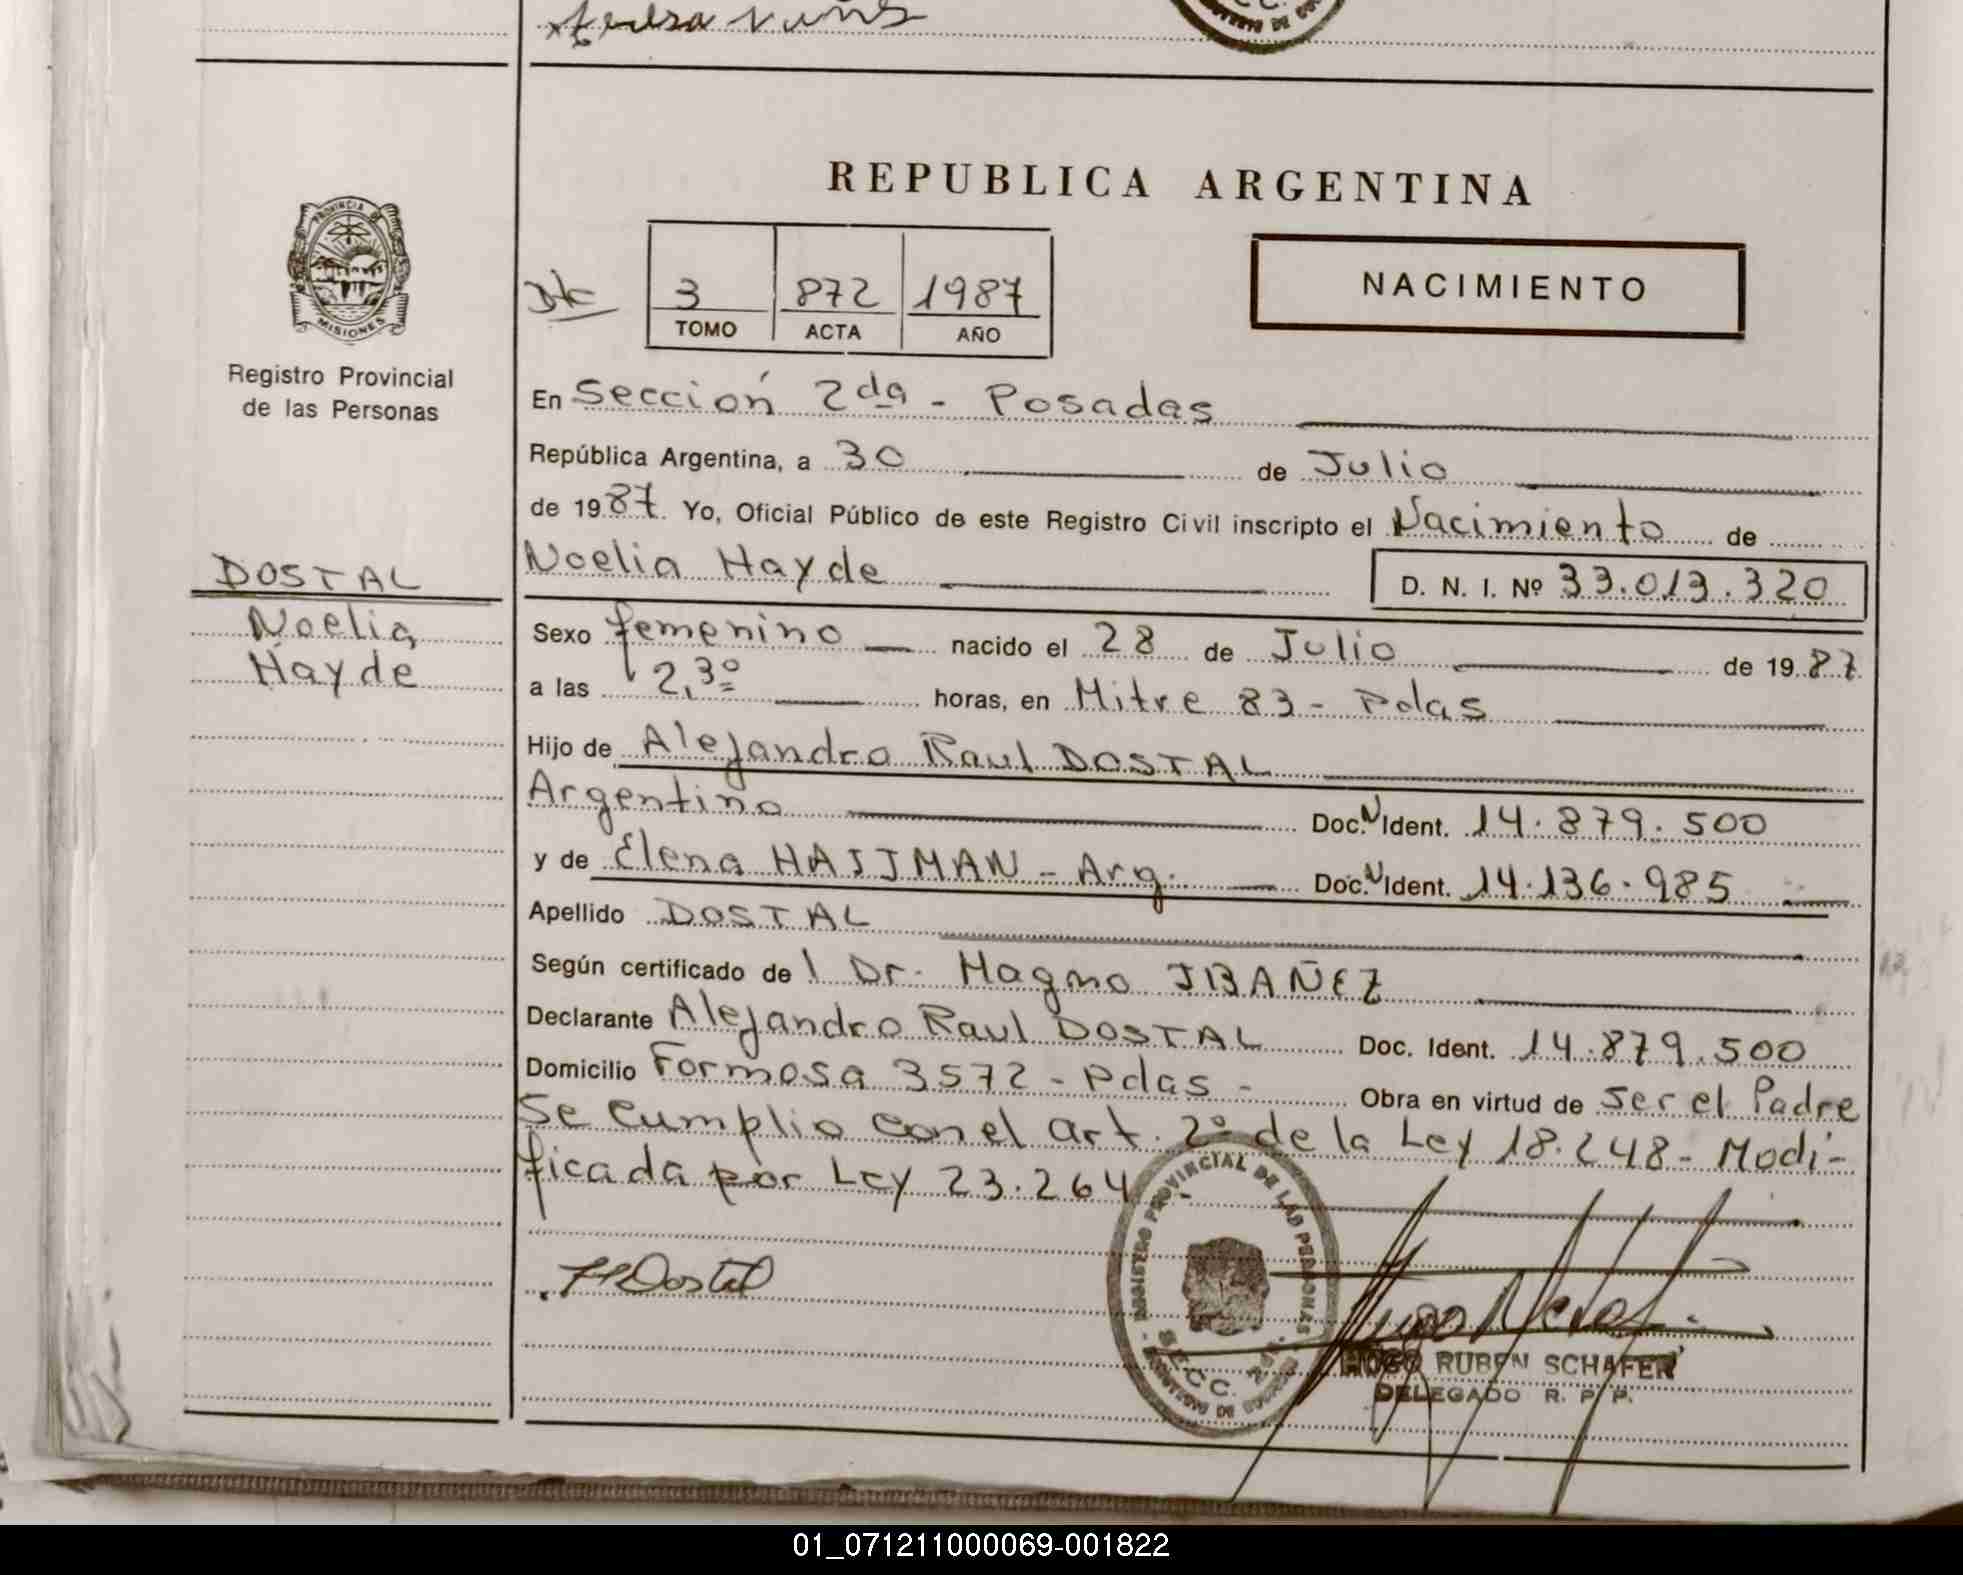 REPUBLICA ARGENTINA
PROVINCIA DE
MISIONES
Registro Provincial
de las Personas
3 872 1987
TOMO ACTA AÑO
NACIMIENTO
En Sección 2da - Posadas
República Argentina, a 30 de Julio
de 1987. Yo, Oficial Público de este Registro Civil inscripto el Nacimiento de
Noelia Hayde
D. N. I. Nº 33.013.320
DOSTAL
Noelia
Hayde
Sexo femenino nacido el 28 de Julio de 1987
a las 2,30 horas, en Mitre 83 - Pdas
Hijo de Alejandro Raul DOSTAL
Argentino Doc. N Ident. 14.879.500
y de Elena HAJJMAN - Arg. Doc. N Ident. 14.136.985
Apellido DOSTAL
Según certificado de l Dr. Magno IBAÑEZ
Declarante Alejandro Raul DOSTAL Doc. Ident. 14.879.500
Domicilio Formosa 3572 - Pdas - Obra en virtud de Ser el Padre
Se cumplio con el art. 2º de la Ley 18.248 - Modi-
ficada por Ley 23.264 -
Dostal
REGISTRO PROVINCIAL DE LAS PERSONAS
HUGO RUBEN SCHAFER
DELEGADO R. P. P.
01_071211000069-001822